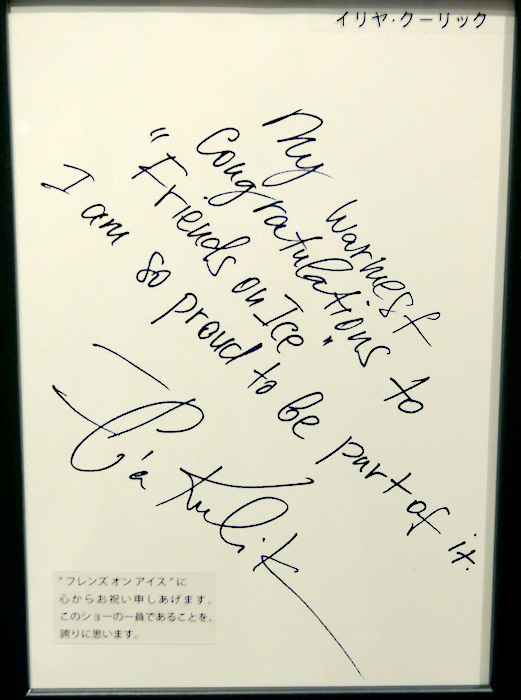 イリヤ・クーリック
My warmest
Congratulations to
"Friends on Ice"
I am so proud to be part of it.
Ilia Kulik
"フレンズ オン アイス"に
心からお祝い申しあげます。
このショーの一員であることを、
誇りに思います。